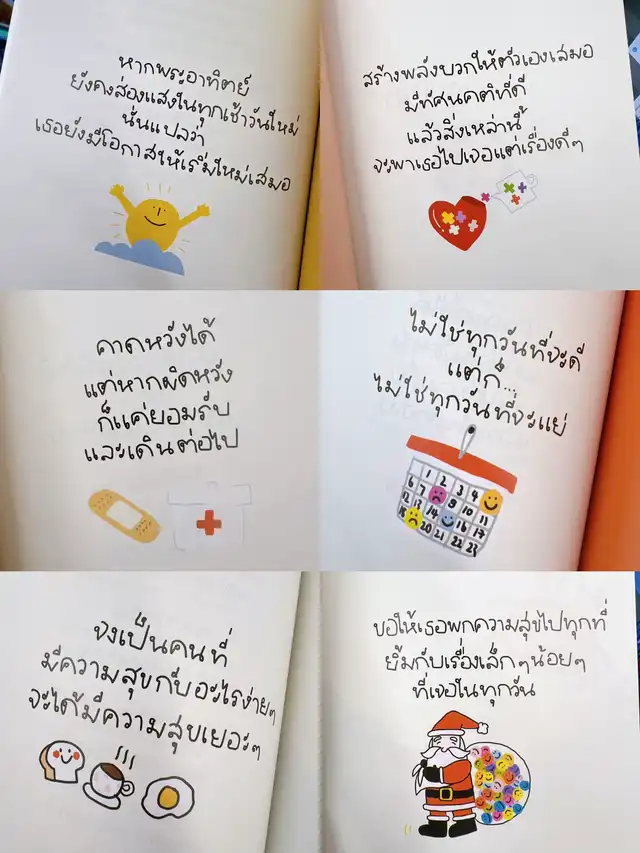 หากพระอาทิตย์
ยังคงส่องแสงในทุกเช้าวันใหม่
นั่นแปลว่า
เธอยังมีโอกาสให้เริ่มใหม่เสมอ
สร้างพลังบวกให้ตัวเองเสมอ
มีทัศนคติที่ดี
แล้วสิ่งเหล่านี้
จะพาเธอไปเจอแต่เรื่องดีๆ
คาดหวังได้
แต่หากผิดหวัง
ก็แค่ยอมรับ
และเดินต่อไป
ไม่ใช่ทุกวันที่จะดี
แต่ก็...
ไม่ใช่ทุกวันที่จะแย่
1 2 3 4
6 7 9 10 11
12 13 14 16 17
19 20 21 22 23
จงเป็นคนที่
มีความสุขกับอะไรง่ายๆ
จะได้มีความสุขเยอะๆ
ขอให้เธอพกความสุขไปทุกที่
ยิ้มกับเรื่องเล็กๆน้อยๆ
ที่เจอในทุกวัน